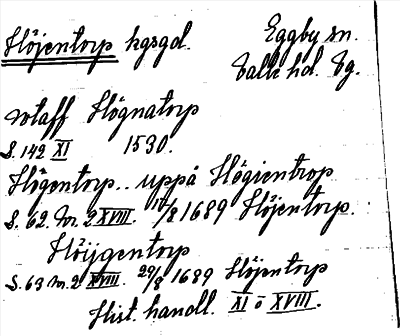 Höjentorp kgsgd. Eggby sn.
Valle hd. Vg.
wtaff Högnatorp
S. 142 XI 1530.
Högentorp.. uppå Högientrop
S. 62. Nr. 2 XVIII. 10/8 1689 Höjentorp.
Höijgentorp
S. 63 Nr. 2 XVIII. 29/8 1689 Höjentorp
Hist. handl. XI o XVIII.